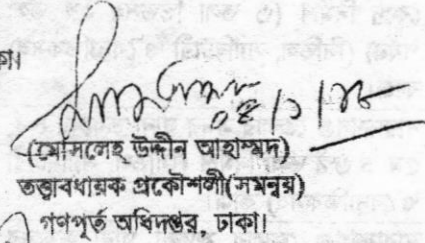 ০৪/১/১৮
(মোসলেহ্ উদ্দীন আহাম্মদ)
তত্ত্বাবধায়ক প্রকৌশলী(সমন্বয়)
গণপূর্ত অধিদপ্তর, ঢাকা।